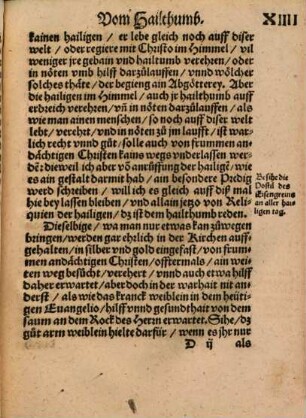 Vom Hailthumb. XIIII
kainen hailigen / er lebe gleich noch auff diser
welt / oder regiere mit Christo im Himmel / vil
weniger jre gebain vnd hailtumb verehen / oder
in nöten vmb hilff darzůlauffen / vnnd wölcher
solches thäte / der begieng ain Abgötterey. Aber
die hailigen im Himmel / auch jr hailthumb auff
erdreich verehren / vñ in nöten darzůlauffen / als
wie man ainen menschen / so noch auff diser welt
lebt / verehrt / vnd in nöten zů jm laufft / ist war-
lich recht vnnd gůt / solle auch von frummen an-
dächtigen Christen kains wegs vnderlassen wer-
dẽ: dieweil ich aber võ anrüffung der hailigẽ / wie
es ain gestalt darmit hab / ain besondere Predig
werd schreiben / will ich es gleich auff diß mal
hie bey lassen bleiben / vnd allain jetzo von Reli-
quien der hailigen / dz ist dem hailthumb reden.
Besihe die
Postil des
Eisengreins
an aller hai-
ligen tag.
Dieselbige / wa man nur etwas kan zůwegen
bringen / werden gar ehrlich in der Kirchen auff-
gehalten / in silber vnd gold eingefast / von frum-
men andächtigen Christen / offtermals / ain wei-
ten weg besůcht / verehert / vnnd auch etwa hilff
daher erwartet / aber doch in der warhait nit an-
derst / als wie das kranck weiblein in dem heüti-
gen Euangelio / hilff vnnd gesundthait von dem
saum an dem Rock des Herrn erwartet. Sihe / dz
gůt arm weiblein hielte darfür / wenn es jhr nur
D ij als